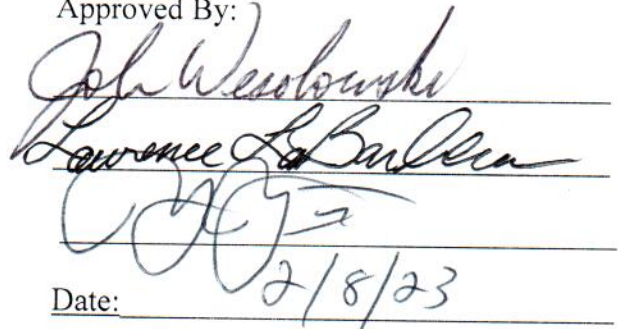 Approved By:
John Wesolowski
Lawrence
Date: 2/8/23